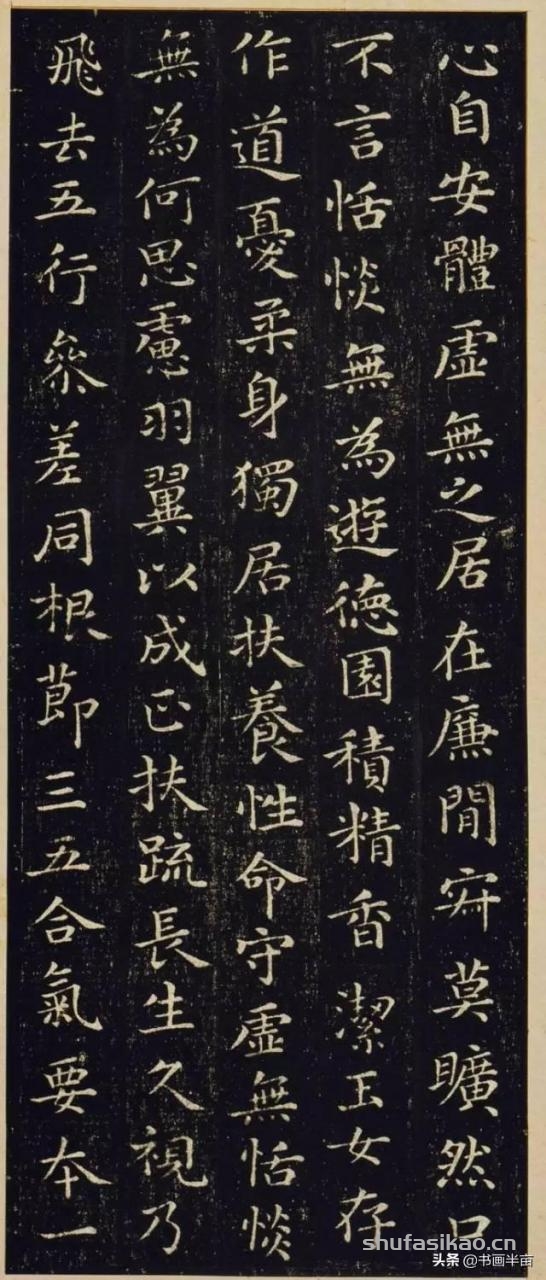 心自安體虛無之居在廉間㝛莫曠然口
不言恬惔無為遊德園積精香潔玉女存
作道憂柔身獨居扶養性命守虛無恬惔
無為何思慮羽翼以成正扶疏長生久視乃
飛去五行參差同根節三五合氣要本一
shufasikao.cn
头条 @书画半亩